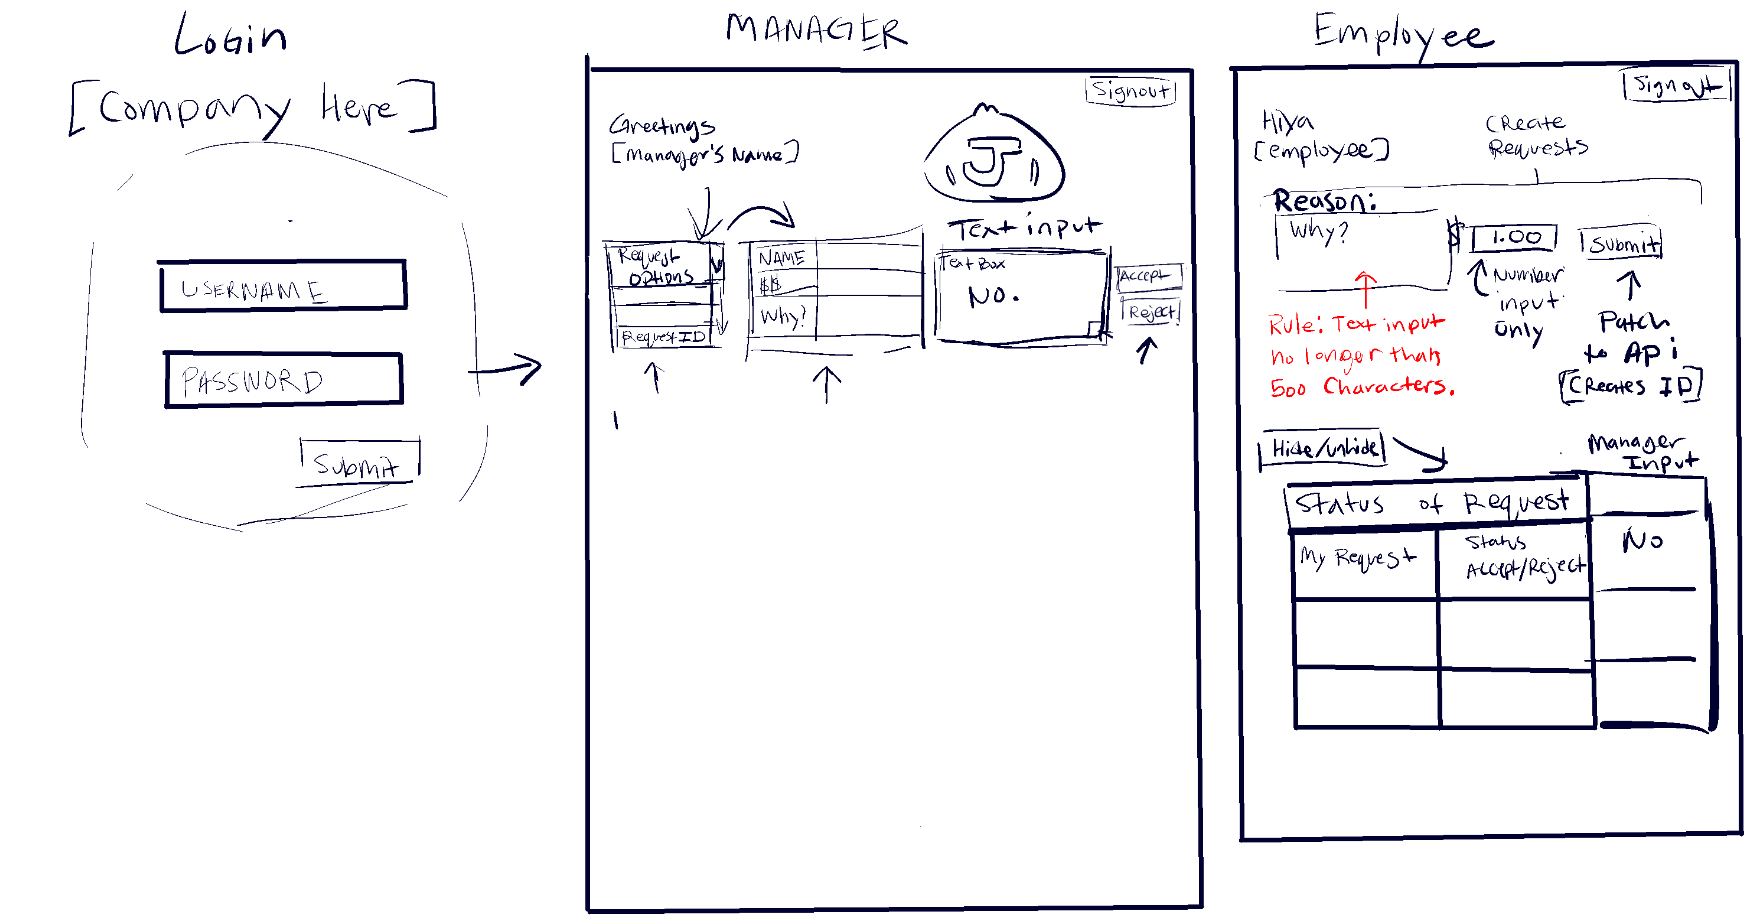 Login
[Company Here]
USERNAME
PASSWORD
Submit
MANAGER
Signout
Greetings
[Manager's Name]
J
Request
OPTIONS
Request ID
NAME
$$
Why?
Text input
Text Box
No.
Accept
Reject
Employee
Signout
Hiya
[employee]
Create
Requests
Reason:
Why?
$
1.00
Submit
Number
input
Only
Rule: Text input
no longer than
500 Characters.
Patch
to API
[Creates ID]
Hide/unhide
Manager
Input
Status of Request
My Request
Status
Accept/Reject
No